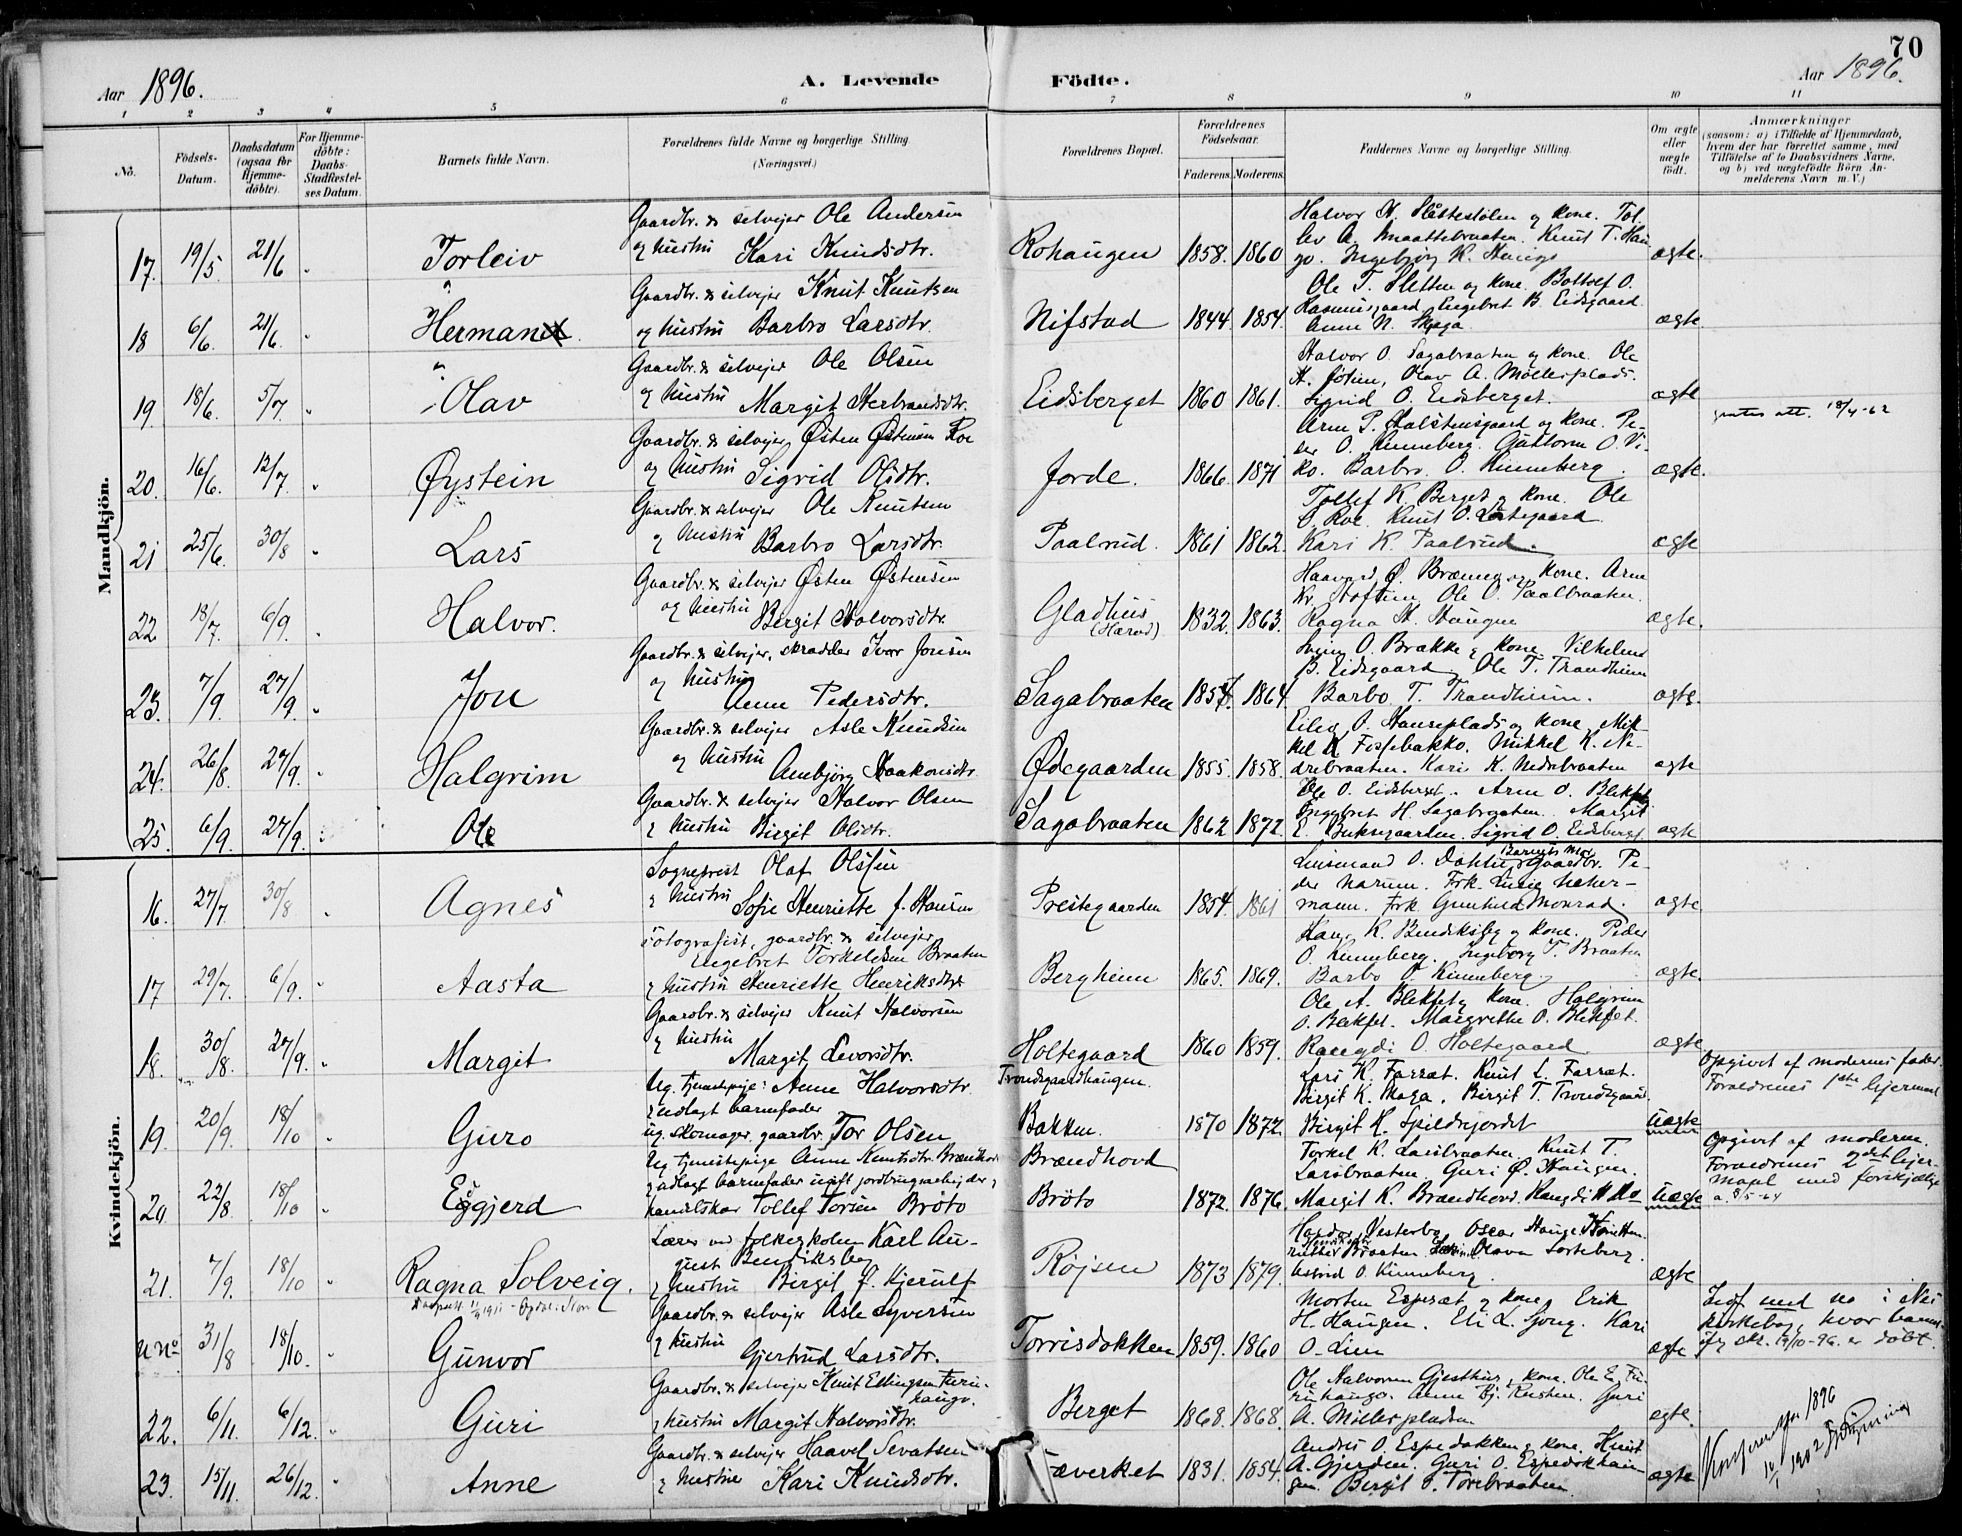 70
Aar 1896.
A. Levende Födte.
Aar 1896.
1 2 3 4 5 6 7 8 9 10 11
No.
Födsels-Datum.
Daabsdatum (ogsaa for Hjemme-döbte).
For Hjemme-döbte: Daabs-Stadfæstel-ses Datum.
Barnets fulde Navn.
Forældrenes fulde Navne og borgerlige Stilling
(Næringsvei.)
Forældrenes Bopæl.
Forældrenes Födselsaar.
Faderens. Moderens.
Faddernes Navne og borgerlige Stilling.
Om ægte eller uægte födt.
Anmærkninger
(saasom: a) i Tilfælde af Hjemmedaab,
hvem der har forrettet samme, med
Tilföielse af to Daabsvidners Navne,
og b) ved uægtefödte Börn An-
melderens Navn m. V.)
Mandkjön.
17. 19/5 21/6 Torleiv
Gaardbr. & selvejer Ole Andersen
og hustru Kari Knudsdtr.
Rohaugen 1858. 1860
Halvor K. Slåttestølen og kone. Tol-
lev A. Maattebraaten. Knut T. Hau-
go. Ingebjørg K. Haugo
ægte.
18 6/6. 21/6. Herman
Gaardbr. & selvejer Knut Knutsen
og hustru Barbro Larsdtr.
Nifstad 1844 1854.
Ole T. Sletten og kone. Bottolf O.
Rasmusgaard, Engebret B. Eidsgaard.
Anne N. Skaga.
ægte
19 18/6. 5/7. Olav
Gaardbr. & selvejer Ole Olsen
og hustru Margit Herbrandsdtr.
Eidsberget 1860 1861.
Halvor O. Sagabraaten og kone. Ole
H. Jötun, Olav A. Möllerplads.
Sigrid O. Eidsberget.
ægte
att. 18/4-62
20. 16/6. 12/7. Øystein
Gaardbr. & selvejer Østen Østensen Roe
og hustru Sigrid Olsdtr.
Jorde. 1866. 1871
Arne P. Halstensgaard og kone. Pe-
der O. Kinneberg. Guttorm O. Vi-
ko. Barbro O. Kinneberg.
ægte.
21 25/6. 30/8 Lars
Gaardbr. & selvejer Ole Knutsen
og hustru Barbro Larsdtr.
Paalrud. 1861 1862.
Tollef K. Berget og kone. Ole
O. Roe. Knut O.
Kari K. Paalrud.
ægte
22 18/7. 6/9. Halvor.
Gaardbr. & selvejer Østen Østensen
og hustru Birgit Halvorsdtr.
Gladhus
1832. 1863.
Haavard Ø. Brænno og kone. Arne
Kr. Toftun. Ole O. Paalbraaten.
Ragna H. Haugen
ægte.
23. 7/9. 27/9. Jon
Gaardbr. & selvejer, skrædder Ivar Jonsen
og hustru Anne Pedersdtr.
Sagabraaten 1857. 1864.
Svein O. Brække og kone. Vilhelm
B. Eidsgaard. Ole T. Trandheim
Barbo T. Trandheim.
ægte.
24. 26/8. 27/9. Halgrim
Gaardbr. & selvejer Asle Knudsen
og hustru Annbjørg Haakonsdtr.
Ødegaarden 1855. 1858
Eilig O. Hauseplads og kone. Mik-
kel K. Fossebakko. Mikkel K. Ne-
drebraaten. Kari K. Nedrebraaten
ægte
25. 6/9. 27/9. Ole
Gaardbr. & selvejer Halvor Olsen
& hustru Birgit Olsdtr.
Sagabraaten 1862 1872.
Ole O. Eidsberget. Arne O. Blekset
Engebret H. Sagabraaten. Margit
E. Buknegaarden. Sigrid O. Eidsberget
ægte
Kvindekjön.
16. 27/7. 30/8 Agnes
Sogneprest Olaf Olsen
& hustru Sofie Henriette f. Hansen
Prestegaarden 1854. 1861
Lensmand O. Dokken, Gaardbr. Pe-
der Narum. Frk.
mann. Frk. Gunhild Monrad.
ægte
17 29/7. 6/9. Aasta
Fotografist, gaardbr. & selvejer
Engebret Torkeldsen Braaten
& hustru Henriette Henriksdtr.
Bergheim 1865. 1869.
K. Bendiksby og kone. Peder
O. Kinneberg. Ingeborg T. Braaten
Barbo O. Kinneberg
ægte.
18. 30/8. 27/9. Margit
Gaardbr. & selvejer Knut Halvorsen
& hustru Margit Levorsdtr.
Holtegaard 1860 1859.
Ole A. Blekset & kone. Halgrim
O. Blekset. Margrethe O. Blekset.
Rangdi O. Holtegaard
ægte
19. 20/9. 18/10 Guro
Ug. tjenestepige: Anne Halvorsdtr.
& udlagt barnefader
ug. skomager, gaardbr. Tor Olsen
Trondsgaardhaugen.
Bakken. 1870 1872.
Lars K. Farset. Knut L. Farset.
Birgit K. Skaga. Birgit T. Trondsgaard.
Birgit H. Spildrejordet
Uægte
Opgivet af moderens fader.
Forældrenes 1ste lejermaal
20 22/8. 18/10 Eggjerd
Ug. tjenestepige Anne Knutsdtr. Brændhovd
& udlagt barnefader ugift jordbrugsarbejder &
handelskar Tollef Torsen Bröto
Brændhovd
Bröto 1872. 1876.
Torkel K. Larsbraaten. Knut T.
Larsbraaten. Guri Ø. Haugen.
Margit K. Brændhovd. Rangdi
Uægte
Opgivet af moderen.
Forældrenes 2det lejer-
maal med forskjellige
a. 8/5-64
21. 7/9. 18/10 Ragna Solveig.
Lærer ved folkeskolen Karl Au-
gust Bendiksby
& hustru Birgit f. Kjerulf
Röjsen 1873 1879.
Haldor Vesterbo, Oscar Hauge
Braaten. Olava Sorteberg.
Astrid O. Kinneberg.
ægte
u No 31/8 18/10. Gunvor
Gaardbr. & selvejer Asle Syversen
& hustru Gjertrud Larsdtr.
Torrisdokken 1859. 1860
Morten Espeset og kone, Erik
H. Haugen. Eli L. Gjeng. Kari
O. Lien
ægte
Indf. med no i Nes
kirkebog, hvor barnet
19/10-96. er döbt.
22. 6/11. 6/12. Guri
Gaardbr. & selvejer Knut Ellingsen Furu-
haugo.
& hustru Margit Halvorsdtr.
Berget 1868. 1868.
Ole Halvorsen Gjesthus, kone. Ole E. Fu-
ruhaugo. Anne Bj. Rusten. Guri
A. Möllerpladsen.
ægte.
23. 15/11. 26/12. Anne
Gaardbr. & selvejer Haavel Sevatsen
& hustru Kari Knudsdtr.
Læverket 1831. 1854.
Andres O. Espedokken & kone. Knut
A. Gjerden. Guri O. Espedokhau-
gen. Birgit O. Torebraaten.
ægte
1896
1902